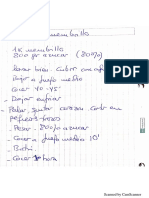 membrillo
1K membrillo
800 gr azucar (80%)
- Lavar bien cubrir con agua
- Dejar a fuego medio
- Cocer 40-45'
- Dejar enfriar
- Pelar, quitar corazon, cortar en
- Pesar 800 gr azucar
- Cocer a fuego medio 10'
- Batir
- Cocer 1 hora
Scanned by CamScanner